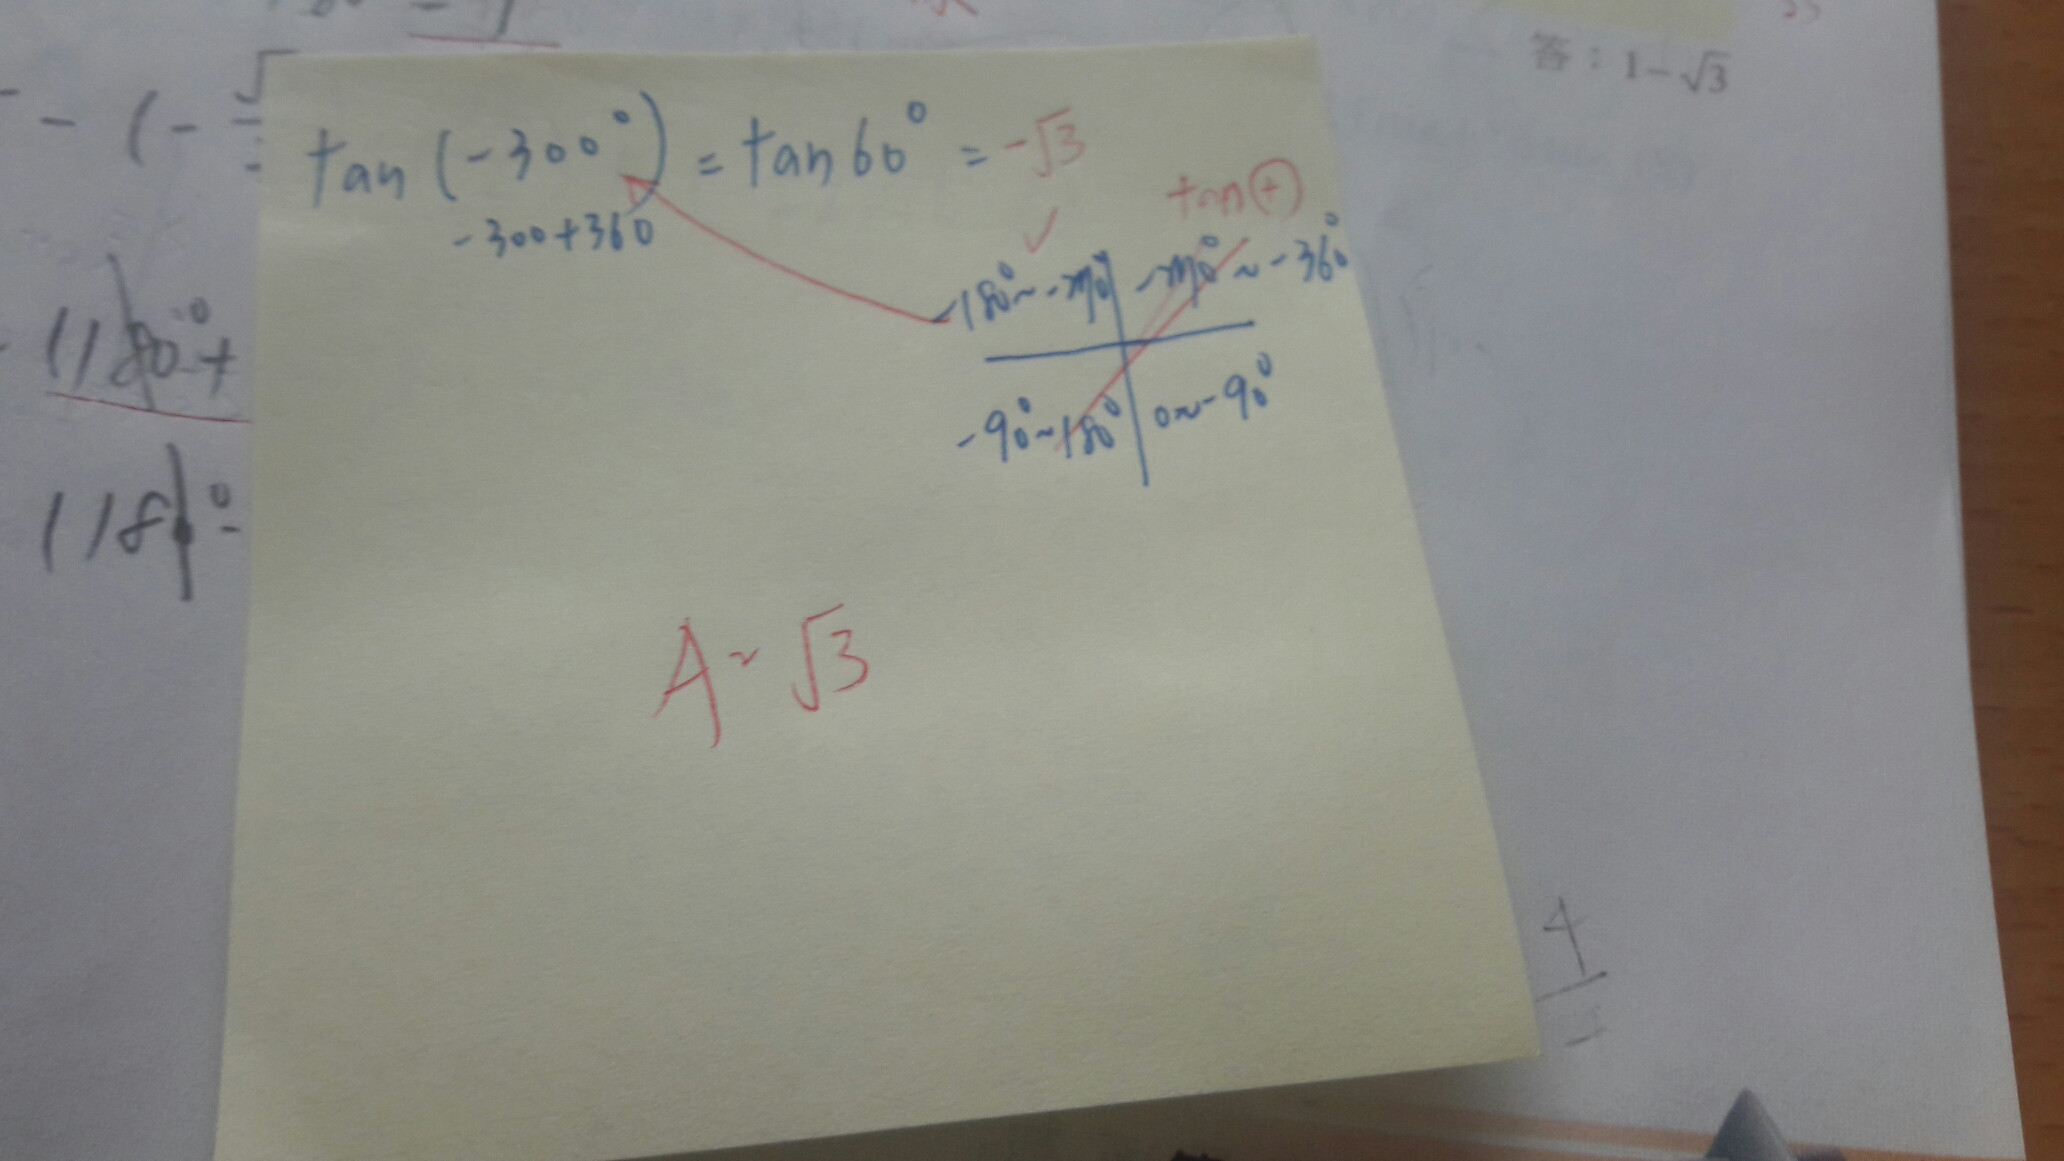 答：1-√3
- (-
tan (-300°) = tan 60° = -√3
-300+360
tan(+)
-180°~-270° -270°~-360°
-90°~180° 0~-90°
1180°+
118
A~√3
4